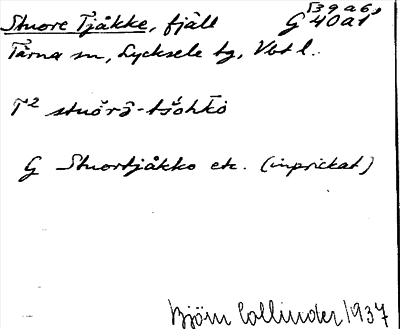 Stuore Tjåkke, fjäll G 39 a 6,
40 a 1
Tärna sn, Lycksele lg, Vbt l.
T² stuŏrä-tšŏhkō
G Stuortjåkko etc. (inprickat)
Björn Collinder 1937